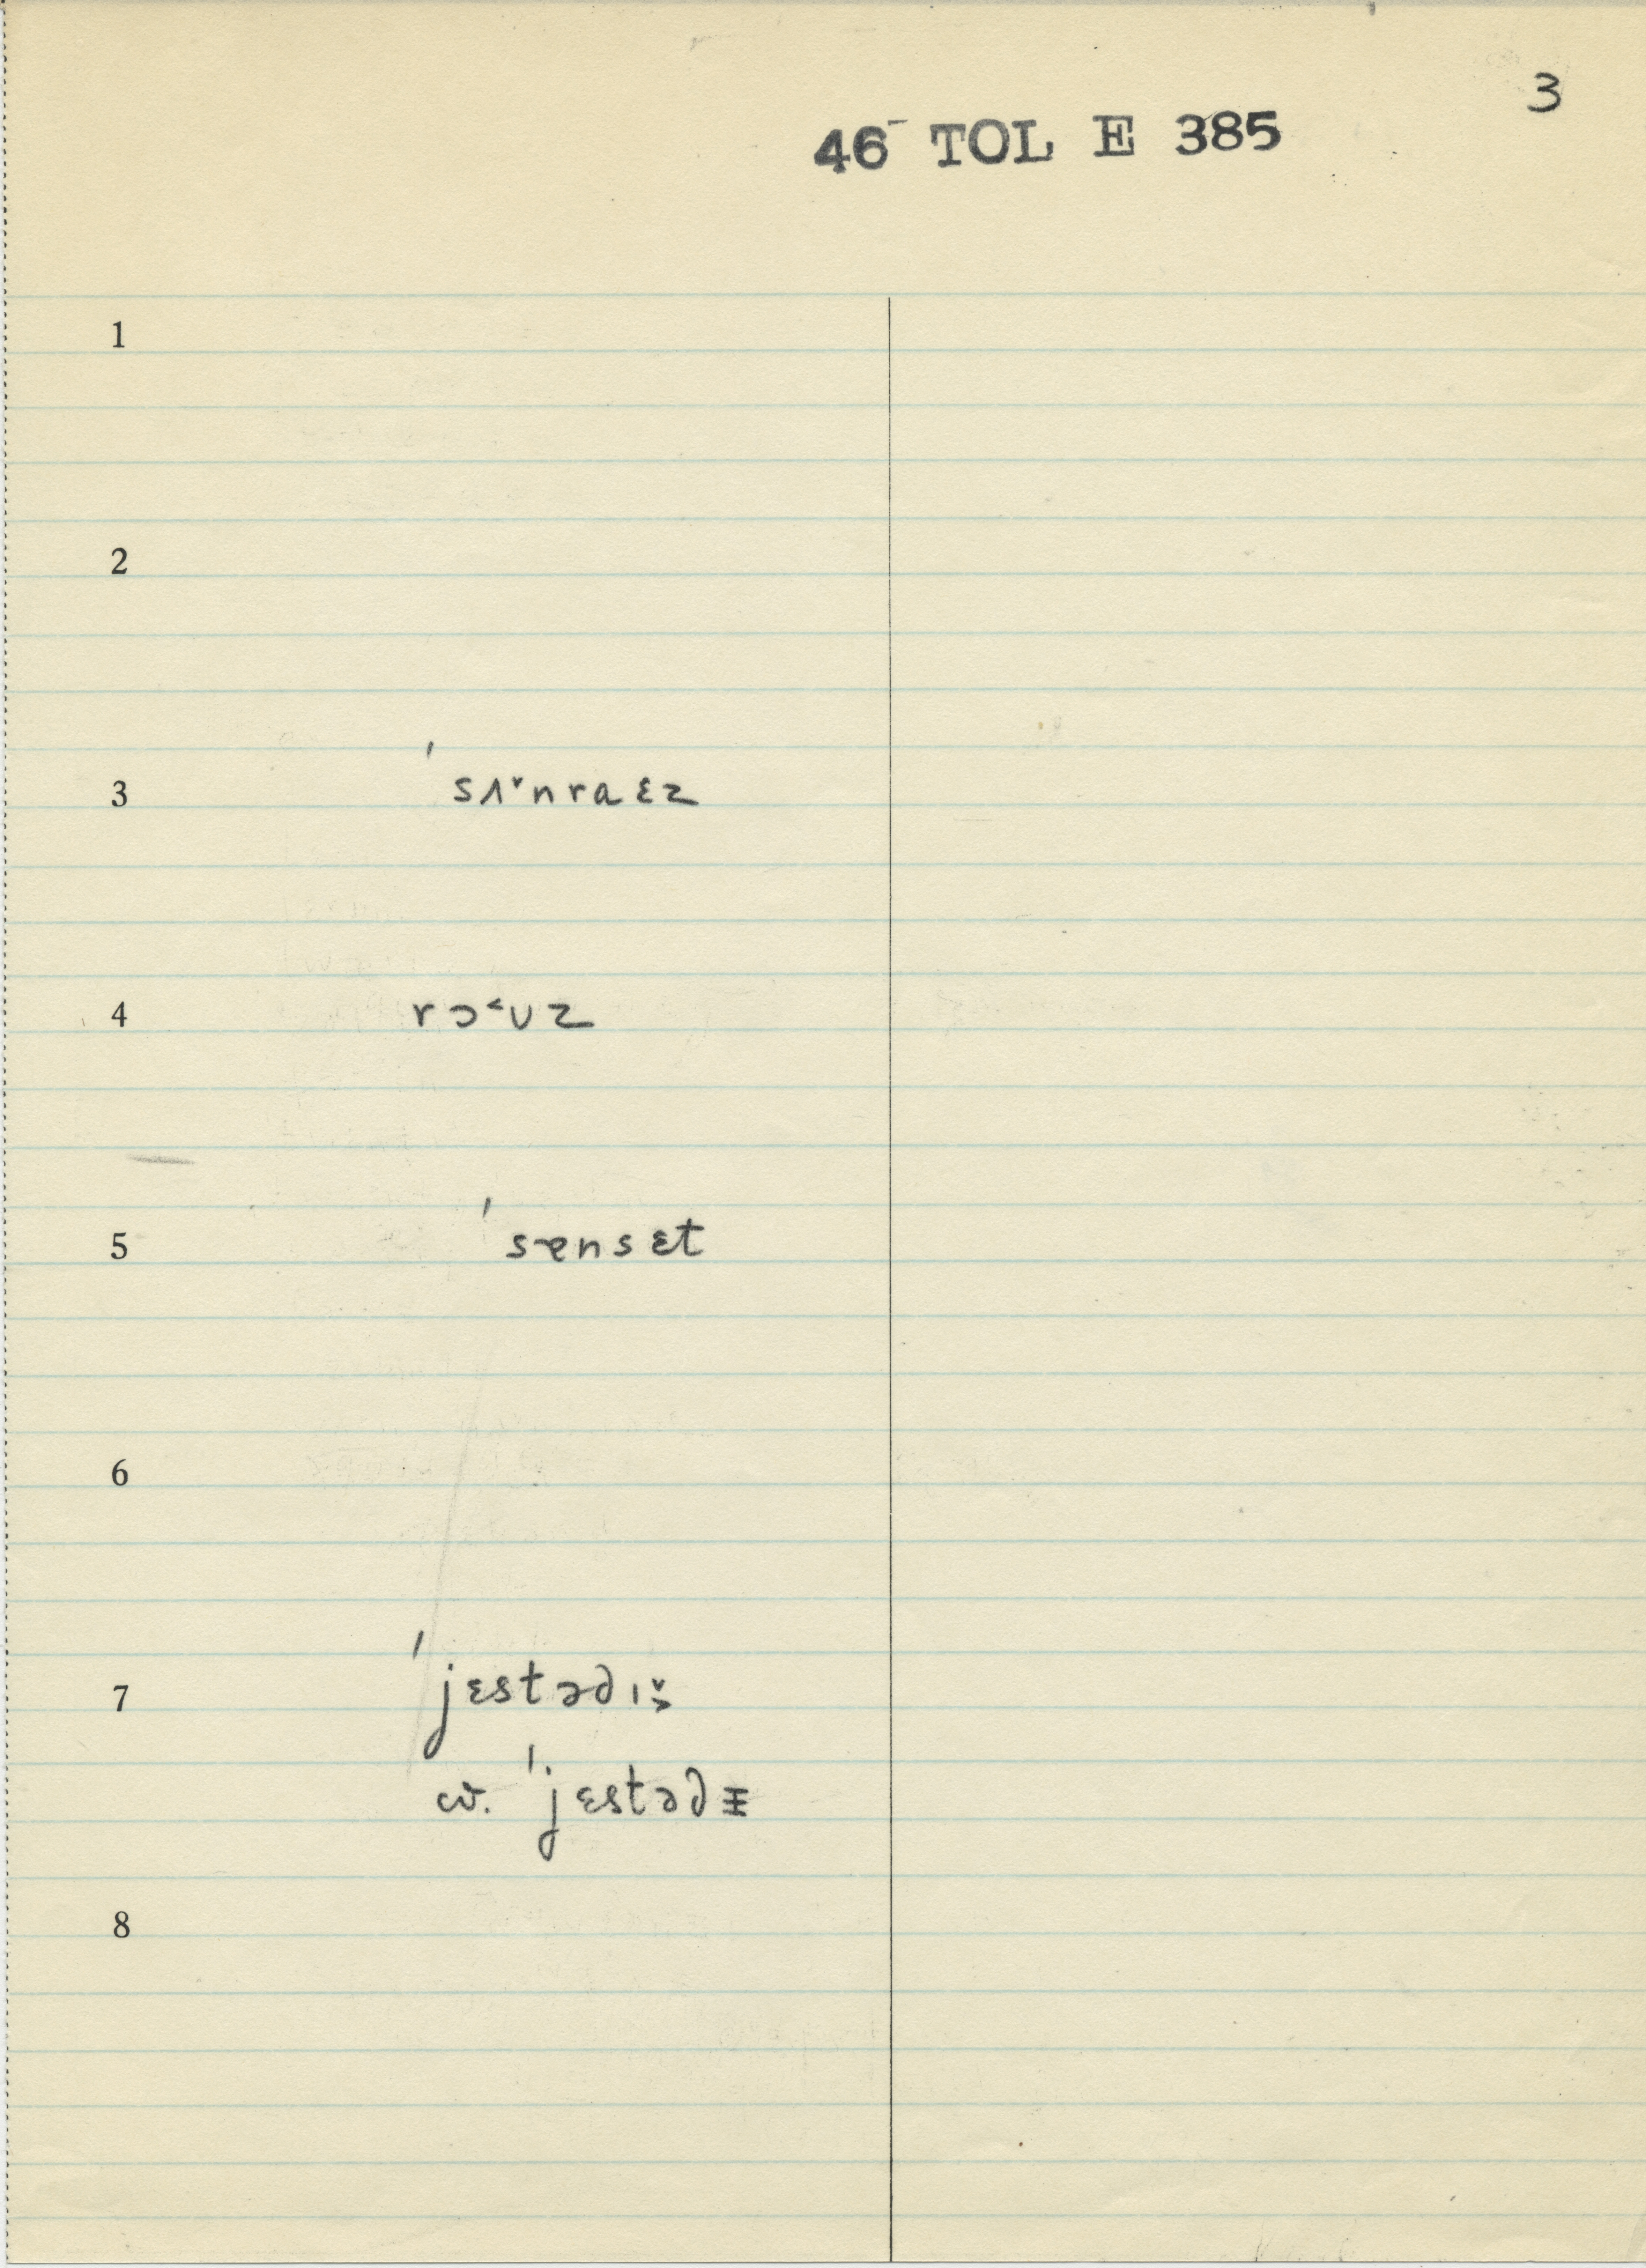 3
46 TOL E 385
1
2
3 ˈsʌ˅nraɛz
4 rɔ˂ʊz
5 ˈsɐnsɛt
6
7 ˈjɛstədɪ̬
cv. ˈjɛstədɪ
8